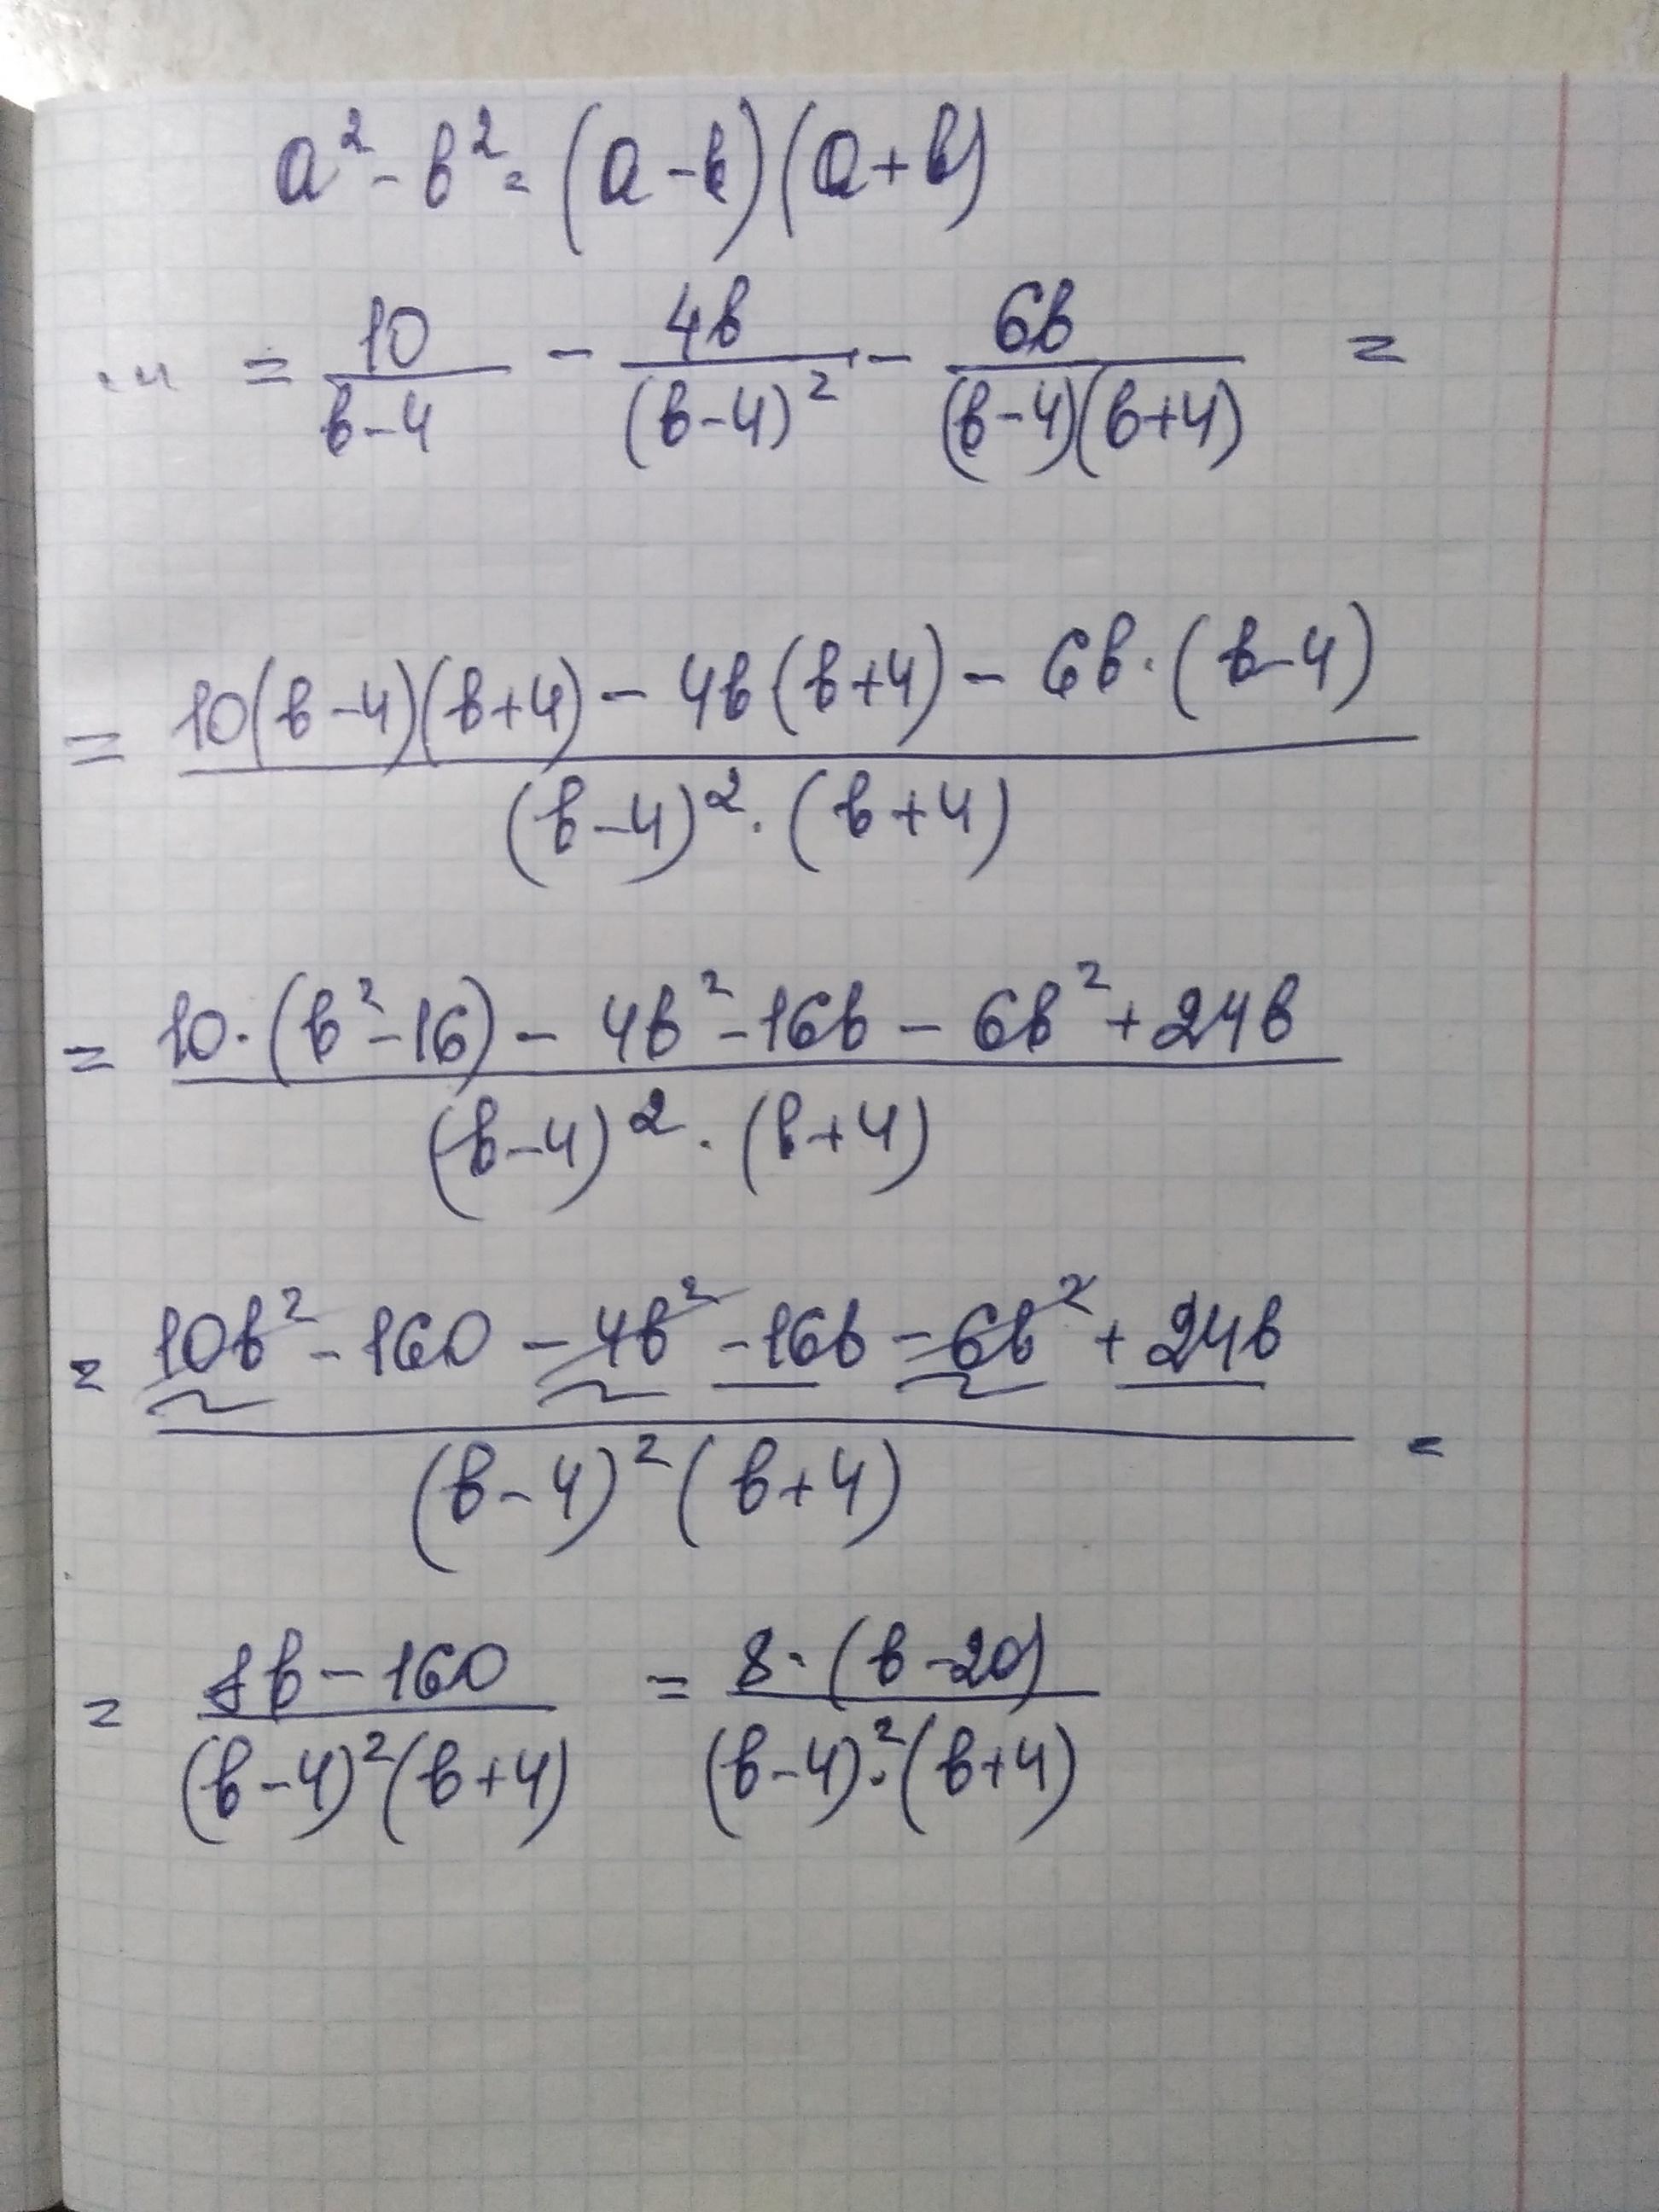 a² - b² = (a - b)(a + b)
... = 10/(b-4) - 4b/(b-4)² - 6b/((b-4)(b+4)) =
= (10(b-4)(b+4) - 4b(b+4) - 6b·(b-4))/((b-4)²·(b+4))
= (10·(b²-16) - 4b² - 16b - 6b² + 24b)/((b-4)²·(b+4))
= (10b² - 160 - 4b² - 16b - 6b² + 24b)/((b-4)²(b+4)) =
= (8b - 160)/((b-4)²(b+4)) = (8·(b-20))/((b-4)²·(b+4))